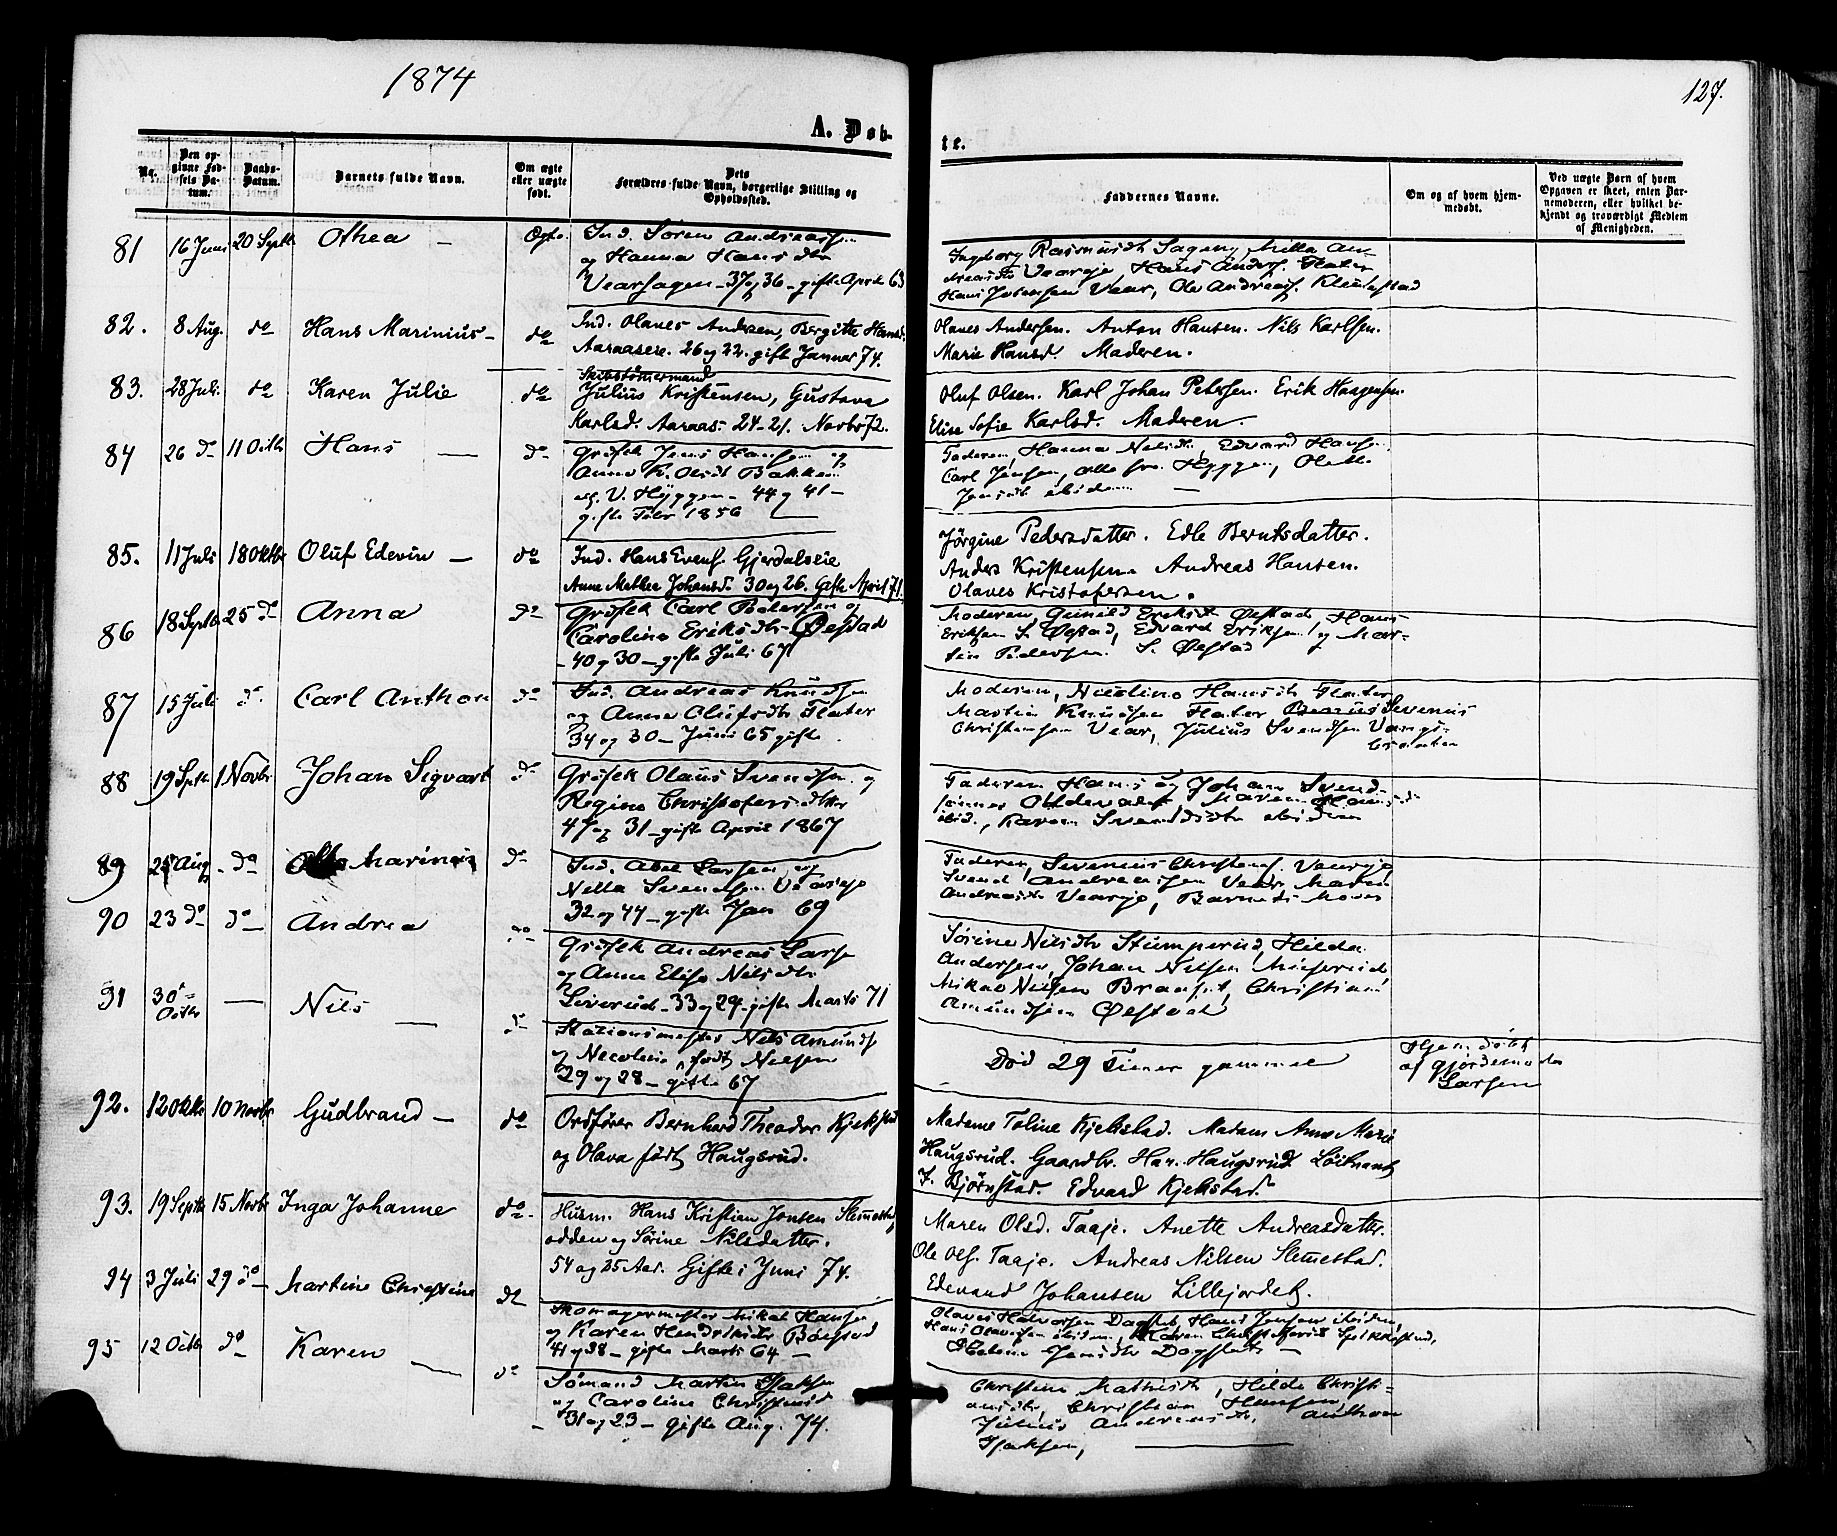 1874
127.
A. Døb-
te.
No.
Den op-
givne Fød-
sels Da-
tum.
Daabs-
Datum.
Barnets fulde Navn.
Om ægte
eller uægte
født.
Dets
Forældres fulde Navn, borgerlige Stilling og
Opholdssted.
Faddernes Navne.
Om og af hvem hjem-
medøbt.
Ved uægte Børn af hvem
Opgaven er skeet, enten Bar-
nemoderen, eller hvilket be-
kjendt og troværdigt Medlem
af Menigheden.
81 16 Juni 20 Septb Othea — Ægte
Ind. Søren Andreass
og Hanna Hansdtr
Vearhagen - 37 og 36 - gifte April 63
Ingeborg Rasmusdt Sageng, Milla An-
dreasdtr Veareje, Hans Anders. Flater
Hans Jørgensen Vear, Ole Andreas. Klemestad
82. 8 Aug. do Hans Marinius - do
Ind. Olaves Andersen, Bergitte Hansd.
Aaraaseie. 26 og 22. gift Januar 74.
Olaves Andersen. Anton Hansen. Nils Karlsen.
Marie Hansd. Moderen.
83. 28 Juli. do Karen Julie do
Skibstømermand
Julius Kristensen, Gustava
Karlsd. Aaraas. 24-21. Novbr 72.
Oluf Olsen. Karl Johan Petersen. Erik Haagensen.
Elise Sofie Karlsd. Moderen.
84 26 do 11 Octb Hans — do
Grdsek Jens Hansen og
Anne K. Olsdt Bakken
V. Hyggen - 44 og 41 -
gifte Febr 1856 —
Faderen, Hanna Nilsdt, Edvard Hansen
Carl Jensen, alle fra Hyggen, Olette
Jensdt ibidem —
85. 11 Juli 18 Oktbr Oluf Edevin — do
Ind. Hans Evens. Gjerdalseie
Anne Mathea Johansd. 30 og 26. Gifte April 71.
Jørgine Pedersdatter. Edle Berntsdatter.
Anders Kristensen Andreas Hansen.
Olaves Kristofersen.
86 18 Septb 25 do Anna do
Grdsek Carl Pedersen og
Caroline Eriksdtr Øvstad
- 40 og 30 - gifte Juli 67
Moderen Gunild Eriksdt Øvstad, Hans
Eriksen S. Øvstad, Edvard Eriksen og Mar-
tin Pedersen S. Øvstad
87 15 Juli do Carl Anthon do
Ind. Andreas Knudsen
og Anne Olufsdtr Flater
34 og 30 - Juni 65 gifte
Moderen, Nicoline Hansdtr Flater
Martin Knudsen Flater Severinus
Christensen Vear, Julius Svendsen
88 19 Septb 1 Novbr Johan Sigvart do
Grdsek Olaus Svendsen og
Regine Christofersdtter
47 og 31 - gifte April 1867
Faderen Hans og Johan Svend-
sønner Oldevalt, Maren Hansdt
ibid., Karen Svendsdtr ibidem
89 25 Aug - do Otto Marinius do
Ind. Abel Larsen og
Nilla Svendsen Veareje
32 og 44 - gifte Jan 69
Faderen, Severinus Christens. Veareje
Svend Andreassen Vear, Maren
Andreasdtr Veareje, Barnets Moder
90 23 do do Andrea do
Grdsek Andreas Larsen
og Anne Elise Nilsdtr
33 og 29 - gifte Marts 71
Sørine Nilsdtr Stumperud, Hilda
Andersen, Johan Nilsen
Mikal Nilsen, Christian
Amundsen Øvstad
91 30 Octb — Nils — do
Stationsmester Nils Amunds
og Nicoline født Nielsen
29 og 28 - gifte 67
Død 29 Timer gammel
Hjemdøbt
af Gjordemoder
Larsen
92. 12 Oktb 10 Novbr Gudbrand — do
Ordfører Bernhard Theodor Kjekstad
og Olava født Haugsrud.
Madame Toline Kjekstad. Madam Anne Marie
Haugsrud. Gaardbr. Han. Haugsrud Løitnant
J. Bjørnstad. Edvard Kjekstad.
93. 19 Septb 15 Novbr Inga Johanne do.
Husm. Hans Kristian Jonsen Slemestad
odden og Sørine Nilsdatter.
54 og 25 Aar. Gifte i Juni 74.
Maren Olsd. Taaje. Anette Andreasdatter.
Ole Ols. Taaje. Andreas Nilsen Slemestad.
Edevard Johansen Lillejordet.
94 3 Juli 29 do — Martin Christine do
Skomagermester Mikal Hansen
og Karen Hendriksdtr Bøgstad
41 og 38 - gifte Marts 64 —
Olaves Halvorsen Dagslet, Hans Jensen ibidem,
Hans Olavesen ibidem, Maren Christofersdt
Helene Jensdtr Dagslet —
95 12 Octb do Karen — do
Sømand Martin Isaksen
og Caroline Christensdt
- 31 og 23 - gifte Aug. 74.
Christine Mathisdt, Hilda Christi-
ansdtr, Christian Hansen,
Julius Andreasdtr, Anthon
Isaksen, —